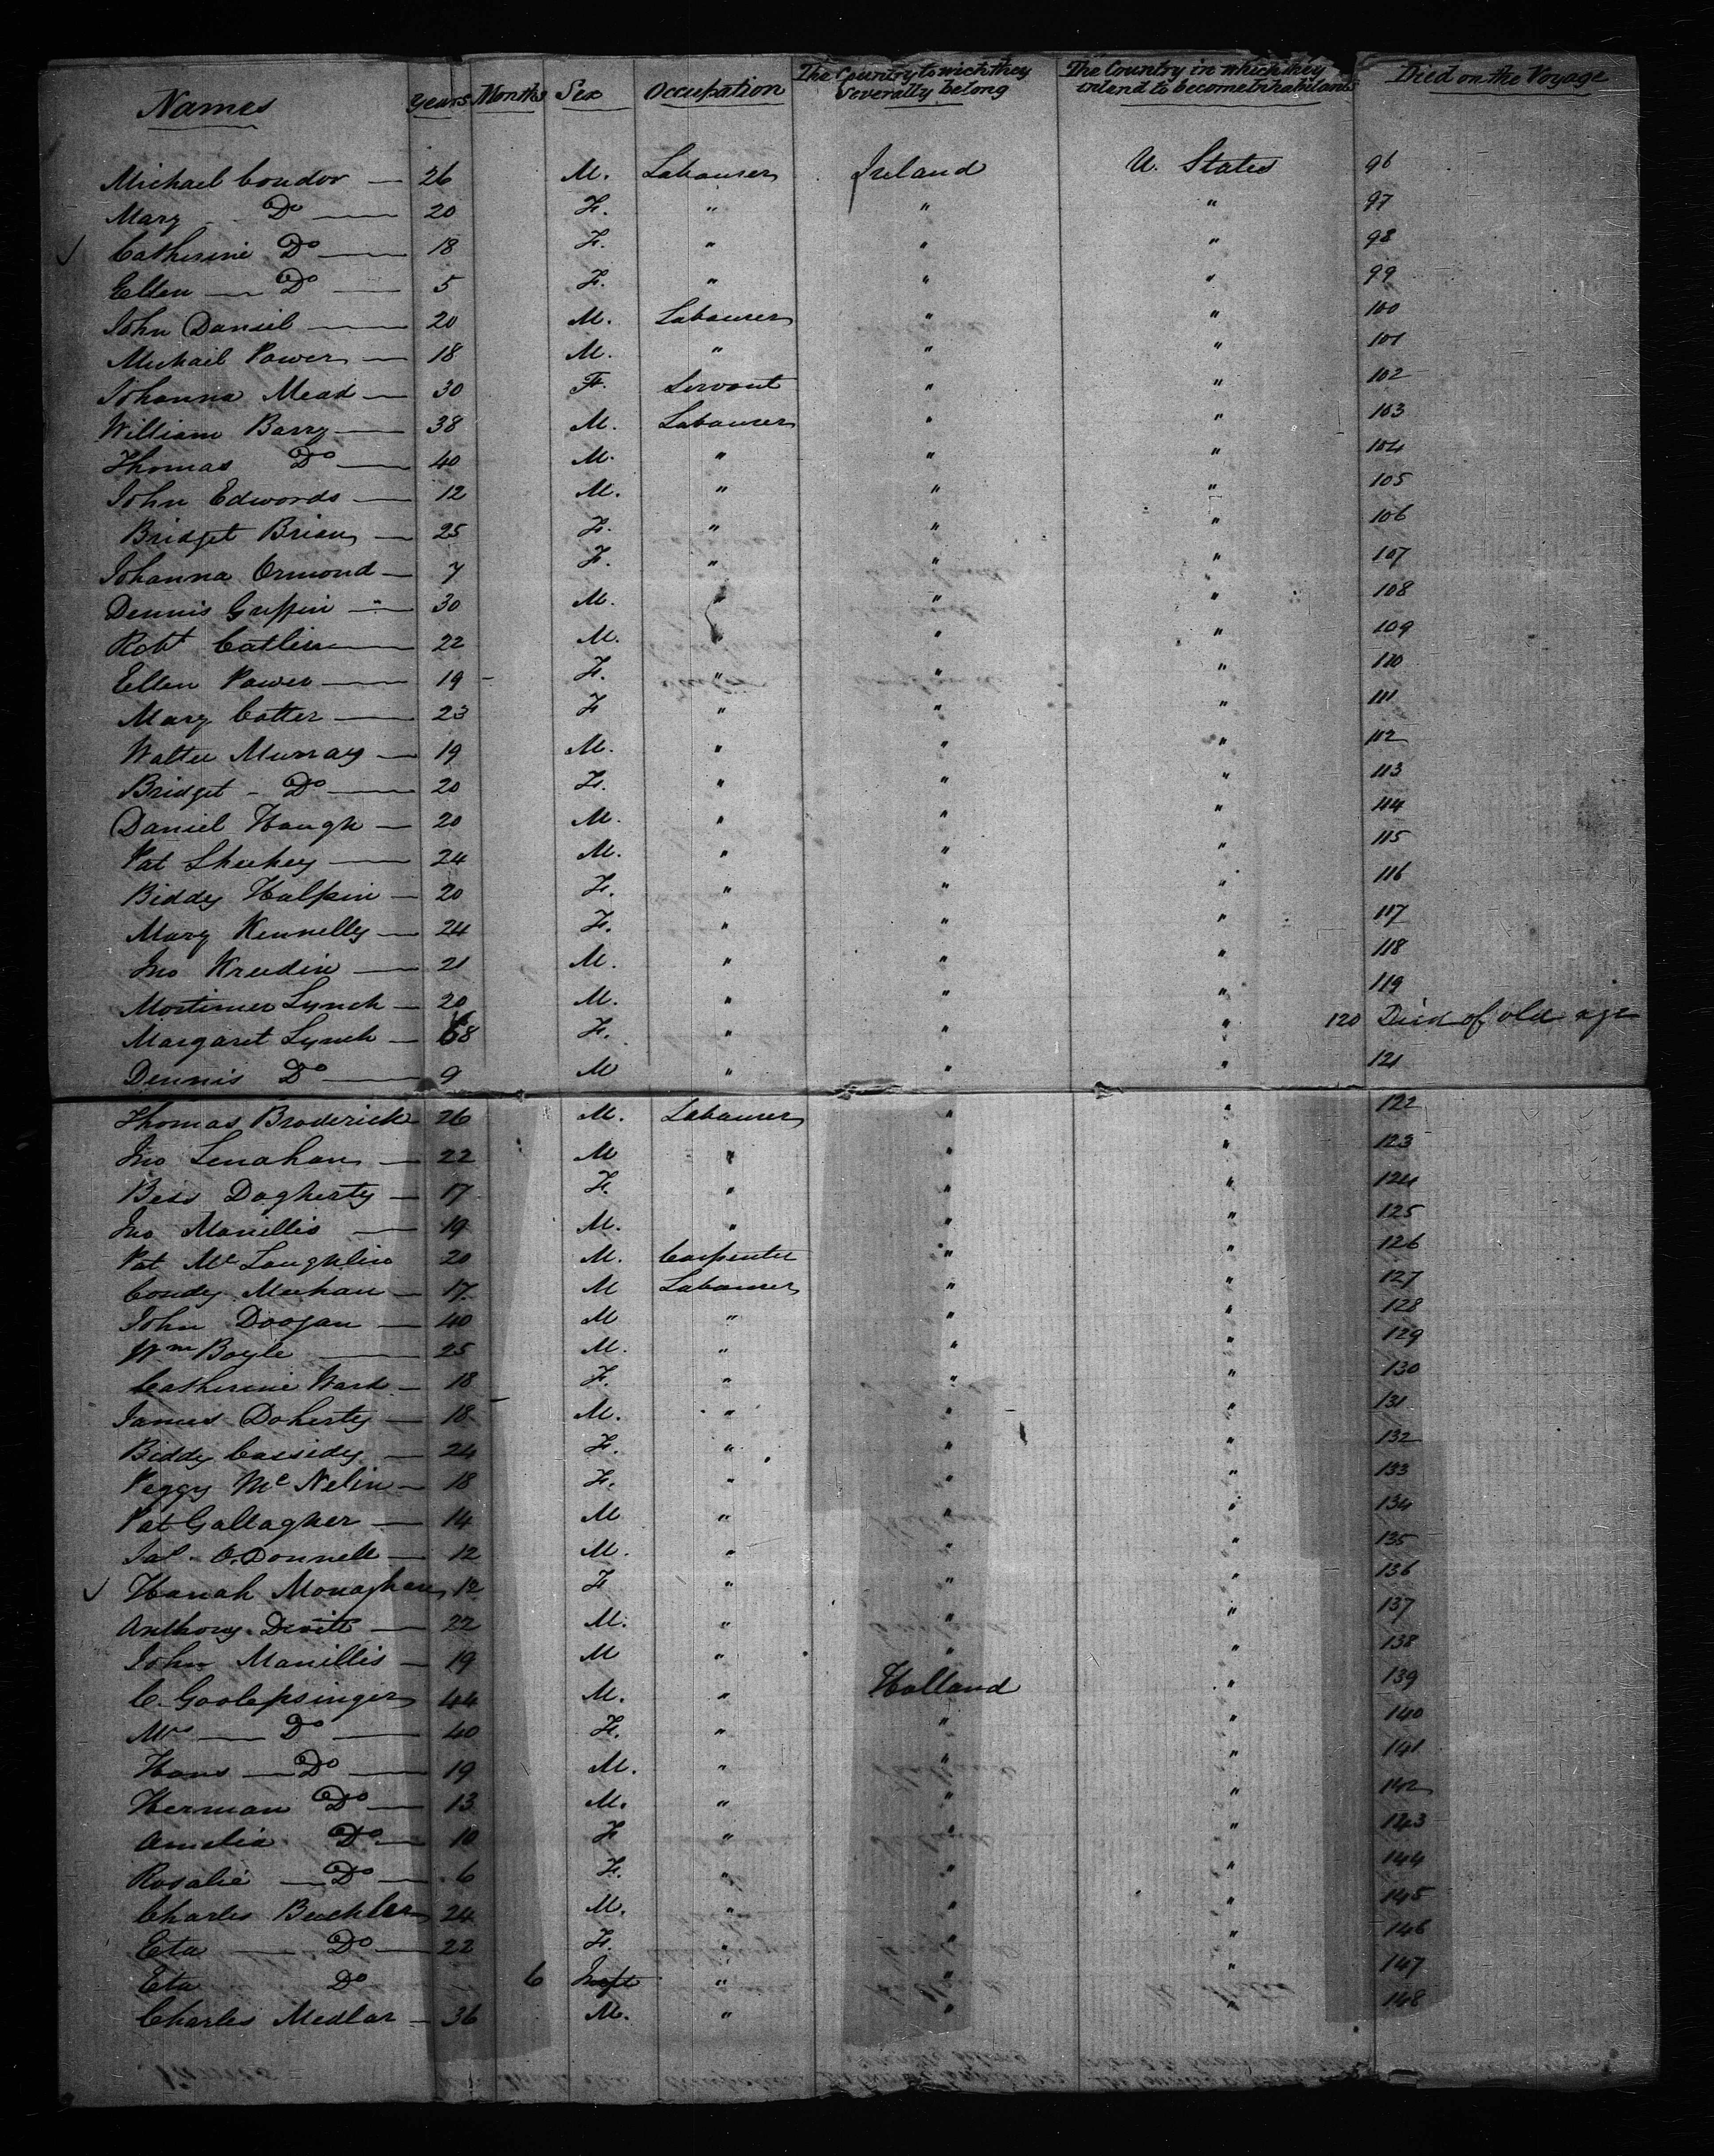 Names Years Months Sex Occupation The Country to wich they severally belong The Country in which they intend to become Inhabitants Died on the Voyage
Michael Condor — 26 M. Labourer Ireland U. States 96
Mary Do — 20 F. " " " 97
Catherine Do — 18 F. " " " 98
Ellen — Do — 5 F. " " " 99
John Daniel — 20 M. Labourer " " 100
Michael Power — 18 M. " " " 101
Johanna Mead — 30 F. Servant " " 102
William Barry — 38 M. Labourer " " 103
Thomas Do — 40 M. " " " 104
John Edwords — 12 M. " " " 105
Bridget Brian — 25 F. " " " 106
Johanna Ormond — 7 F. " " " 107
Dennis Griffin — 30 M. " " " 108
Robt Catlin — 22 M. " " " 109
Ellen Power — 19 F. " " " 110
Mary Cotter — 23 F " " " 111
Walter Murray — 19 M. " " " 112
Bridget - Do — 20 F. " " " 113
Daniel Haugh — 20 M. " " " 114
Pat Sheehey — 24 M. " " " 115
Biddy Halpin — 20 F. " " " 116
Mary Kennelly — 24 F. " " " 117
Jno Kreedin — 21 M. " " " 118
Mortimer Lynch — 20 M. " " " 119
Margaret Lynch — 68 F. " " " 120 Died of old age
Dennis Do — 9 M " " " 121
Thomas Broderick 26 M. Labourer " " 122
Jno Lenahan — 22 M " " " 123
Bess Dogherty — 17 F. " " " 124
Jno Manillis — 19 M. " " " 125
Pat Mc Laughlin 20 M. Carpenter " " 126
Condy Meehan — 17 M Labourer " " 127
John Doogan — 40 M " " " 128
Wm Boyle — 25 M. " " " 129
Catherine Ward — 18 F. " " " 130
James Doherty — 18 M. " " " 131
Biddy Cassidy — 24 F. " " " 132
Peggy Mc Nelin — 18 F. " " " 133
Pat Gallagher — 14 M " " " 134
Jas O.Donnell — 12 M. " " " 135
Hanah Monaghan 12 F " " " 136
Anthony Divitt — 22 M. " " " 137
John Manillis — 19 M " " " 138
C. Goolepsinger 44 M. " Holland " 139
Mrs — Do — 40 F. " " " 140
Hans — Do — 19 M. " " " 141
Herman Do — 13 M. " " " 142
Amelia Do — 10 F " " " 143
Rosalie — Do — 6 F. " " " 144
Charles Buchler 24 M. " " " 145
Eta — Do — 22 F. " " " 146
Eta Do 6 Inft " " " 147
Charles Medlar — 36 M. " " " 148